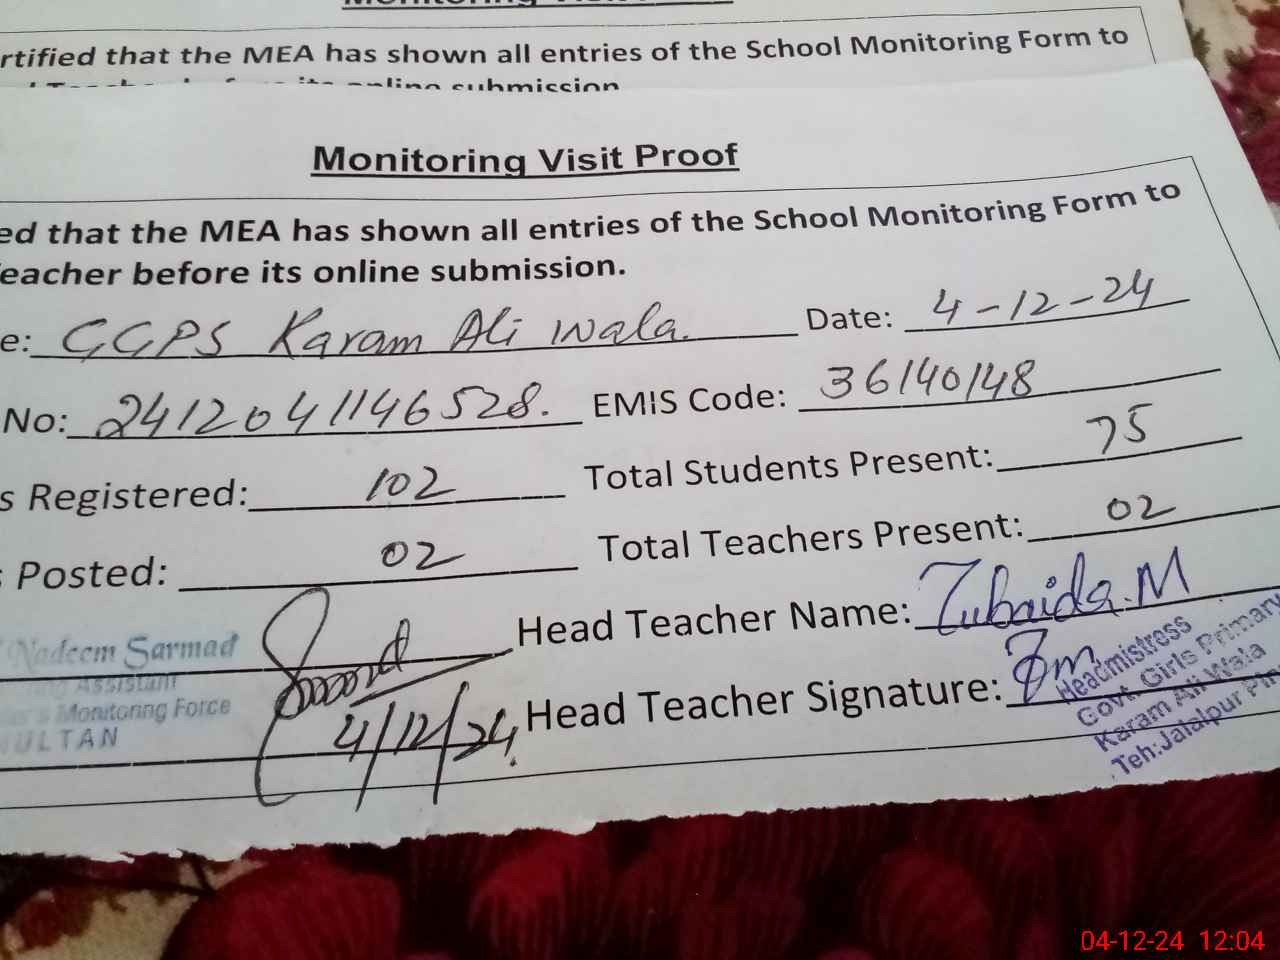 rtified that the MEA has shown all entries of the School Monitoring Form to
online submission
Monitoring Visit Proof
ed that the MEA has shown all entries of the School Monitoring Form to
eacher before its online submission.
e: GGPS Karam Ali wala. Date: 4-12-24
No: 2412041146528. EMIS Code: 36140148
s Registered: 102 Total Students Present: 75
Posted: 02 Total Teachers Present: 02
Head Teacher Name: Zubaida.M
Nadeem Sarmad
Assistant
Monitoring Force
ULTAN
4/12/24
Head Teacher Signature: Zm
Headmistress
Govt. Girls Primary
Karam Ali Wala
Teh:Jalalpur Pir
04-12-24 12:04